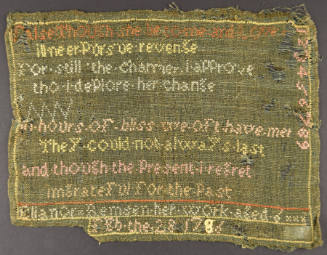 False Though she be to me and Love
ill neer Pursue revenge
For still the charmer I approve
tho I deplore her change
in hours of bliss we oft have met
They could not always last
and though the Present I regret
im grateful For the Past
Elianor Remsen her work aged
Feb the 28 178